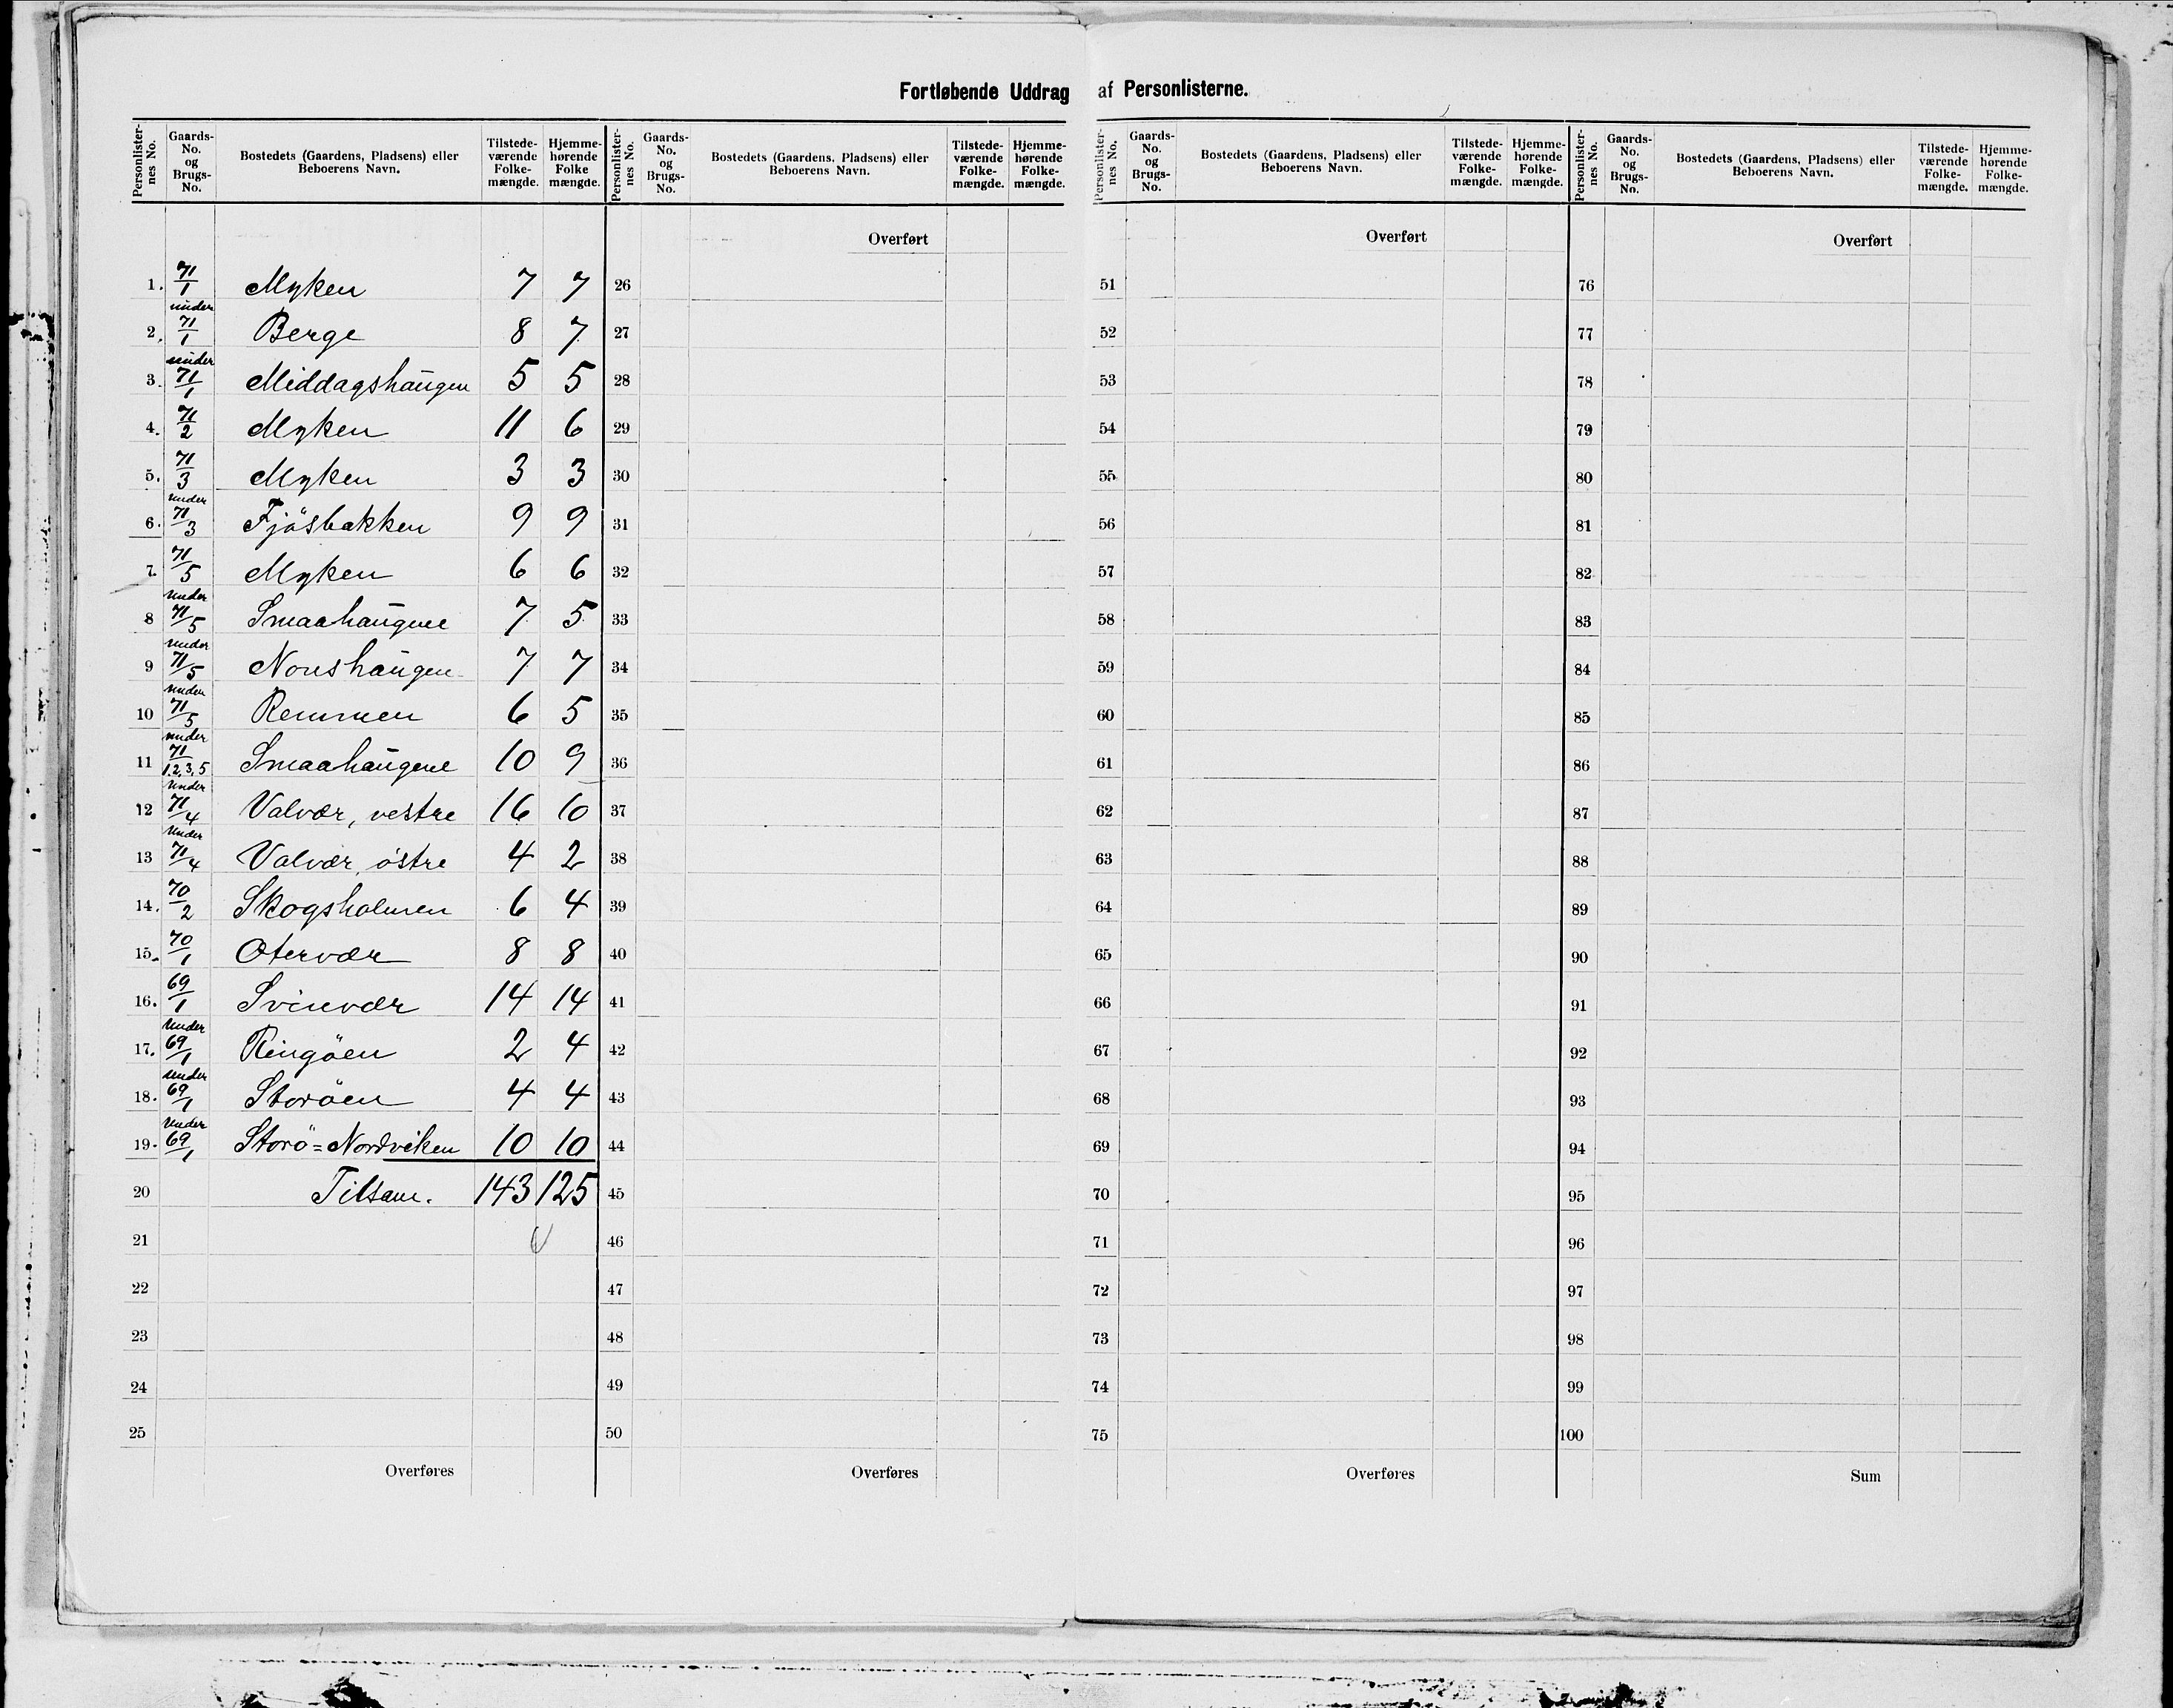 Fortløbende Uddrag af Personlisterne.
Personlister-nes No. Gaards-No. og Brugs-No. Bostedets (Gaardens, Pladsens) eller Beboerens Navn. Tilstede-værende Folke-mængde. Hjemme-hørende Folke mængde.
Personlister-nes No. Gaards-No. og Brugs-No. Bostedets (Gaardens, Pladsens) eller Beboerens Navn. Tilstede-værende Folke-mængde. Hjemme-hørende Folke-mængde.
Personlister-nes No. Gaards-No. og Brugs-No. Bostedets (Gaardens, Pladsens) eller Beboerens Navn. Tilstede-værende Folke-mængde. Hjemme-hørende Folke-mængde.
Personlister-nes No. Gaards-No. og Brugs-No. Bostedets (Gaardens, Pladsens) eller Beboerens Navn. Tilstede-værende Folke-mængde. Hjemme-hørende Folke-mængde.
Overført Overført Overført
1. 71/1 Myken 7 7 26 51 76
2. under 71/1 Berge 8 7 27 52 77
3. under 71/1 Middagshaugen 5 5 28 53 78
4. 71/2 Myken 11 6 29 54 79
5. 71/3 Myken 3 3 30 55 80
6. under 71/3 Fjösbakken 9 9 31 56 81
7. 71/5 Myken 6 6 32 57 82
8 under 71/5 Smaahaugene 7 5 33 58 83
9 under 71/5 Nonshaugen 7 7 34 59 84
10 under 71/5 Remmen 6 5 35 60 85
11 under 71/1.2.3.5 Smaahaugene 10 9 36 61 86
12 under 71/4 Valvær, vestre 16 10 37 62 87
13 under 71/4 Valvær, östre 4 2 38 63 88
14. 70/2 Skogsholmen 6 4 39 64 89
15. 70/1 Otervær 8 8 40 65 90
16. 69/1 Svinvær 14 14 41 66 91
17. under 69/1 Ringöen 2 4 42 67 92
18. under 69/1 Storöen 4 4 43 68 93
19. under 69/1 Storö=Nordviken 10 10 44 69 94
20 Tilsam. 143 125 45 70 95
21 46 71 96
22 47 72 97
23 48 73 98
24 49 74 99
25 50 75 100
Overføres Overføres Overføres Sum